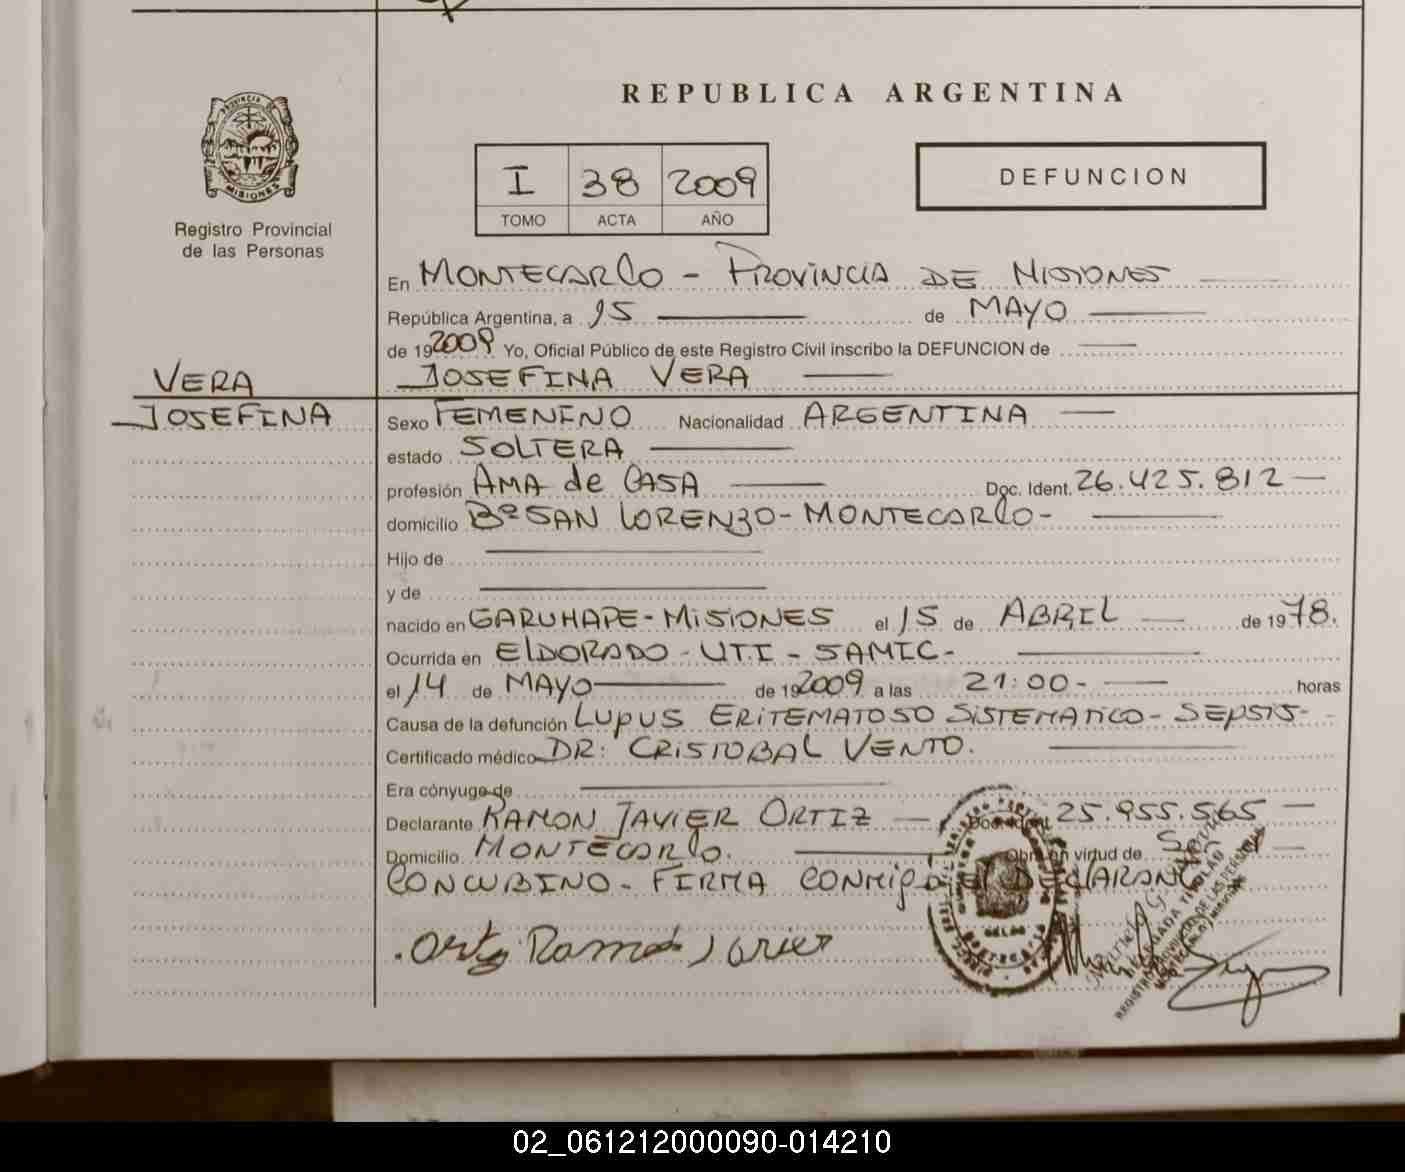 REPUBLICA ARGENTINA
PROVINCIA DE
MISIONES
Registro Provincial
de las Personas
I 38 2009
TOMO ACTA AÑO
DEFUNCION
En MONTECARLO - PROVINCIA DE MISIONES
República Argentina, a 15 de MAYO
de 192009 Yo, Oficial Público de este Registro Civil inscribo la DEFUNCION de
VERA
JOSEFINA VERA
JOSEFINA
Sexo FEMENINO Nacionalidad ARGENTINA
estado SOLTERA
profesión AMA de CASA Doc. Ident. 26.425.812
domicilio Bº SAN LORENZO - MONTECARLO -
Hijo de
y de
nacido en GARUHAPE - MISIONES el 15 de ABRIL de 1978.
Ocurrida en ELDORADO - UTI - SAMIC -
el 14 de MAYO de 192009 a las 21:00 - horas
Causa de la defunción LUPUS ERITEMATOSO SISTEMATICO - SEPSIS -
Certificado médico DR: CRISTOBAL VENTO.
Era cónyuge de
Declarante RAMON JAVIER ORTIZ Doc. Ident. 25.955.565
Domicilio MONTECARLO. Obra en virtud de Ser
CONCUBINO - FIRMA CONMIGO EL DECLARANTE
Ortiz Ramon Javier
02_061212000090-014210